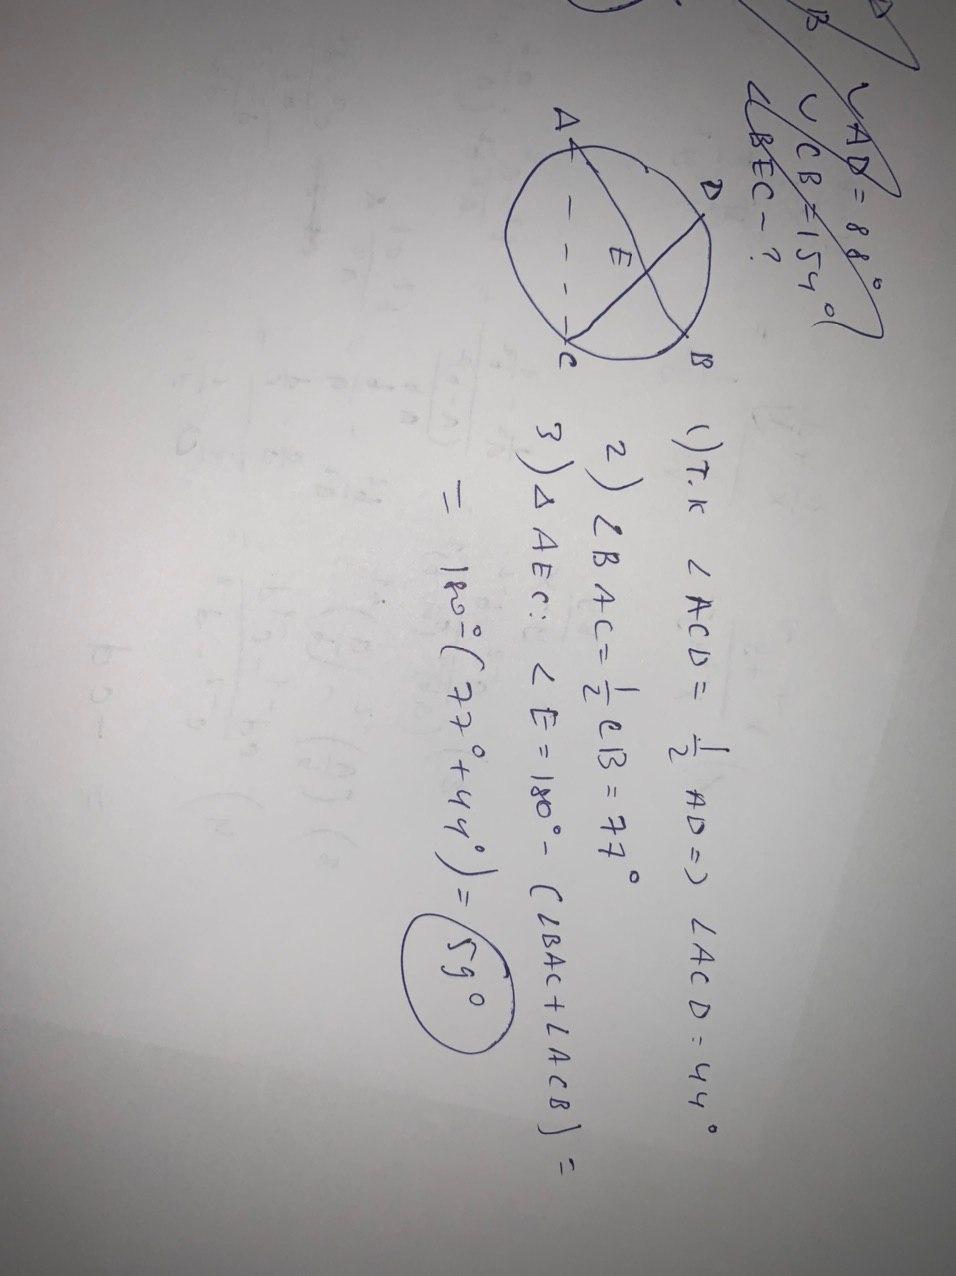 ◡AD = 88°
◡CB = 154°
∠BEC - ?
A
D
E
B
C
1) т.к ∠ACD = 1/2 AD => ∠ACD = 44°
2) ∠BAC = 1/2 CB = 77°
3) ΔAEC: ∠E = 180° - (∠BAC + ∠ACB) =
= 180° - (77° + 44°) = 59°